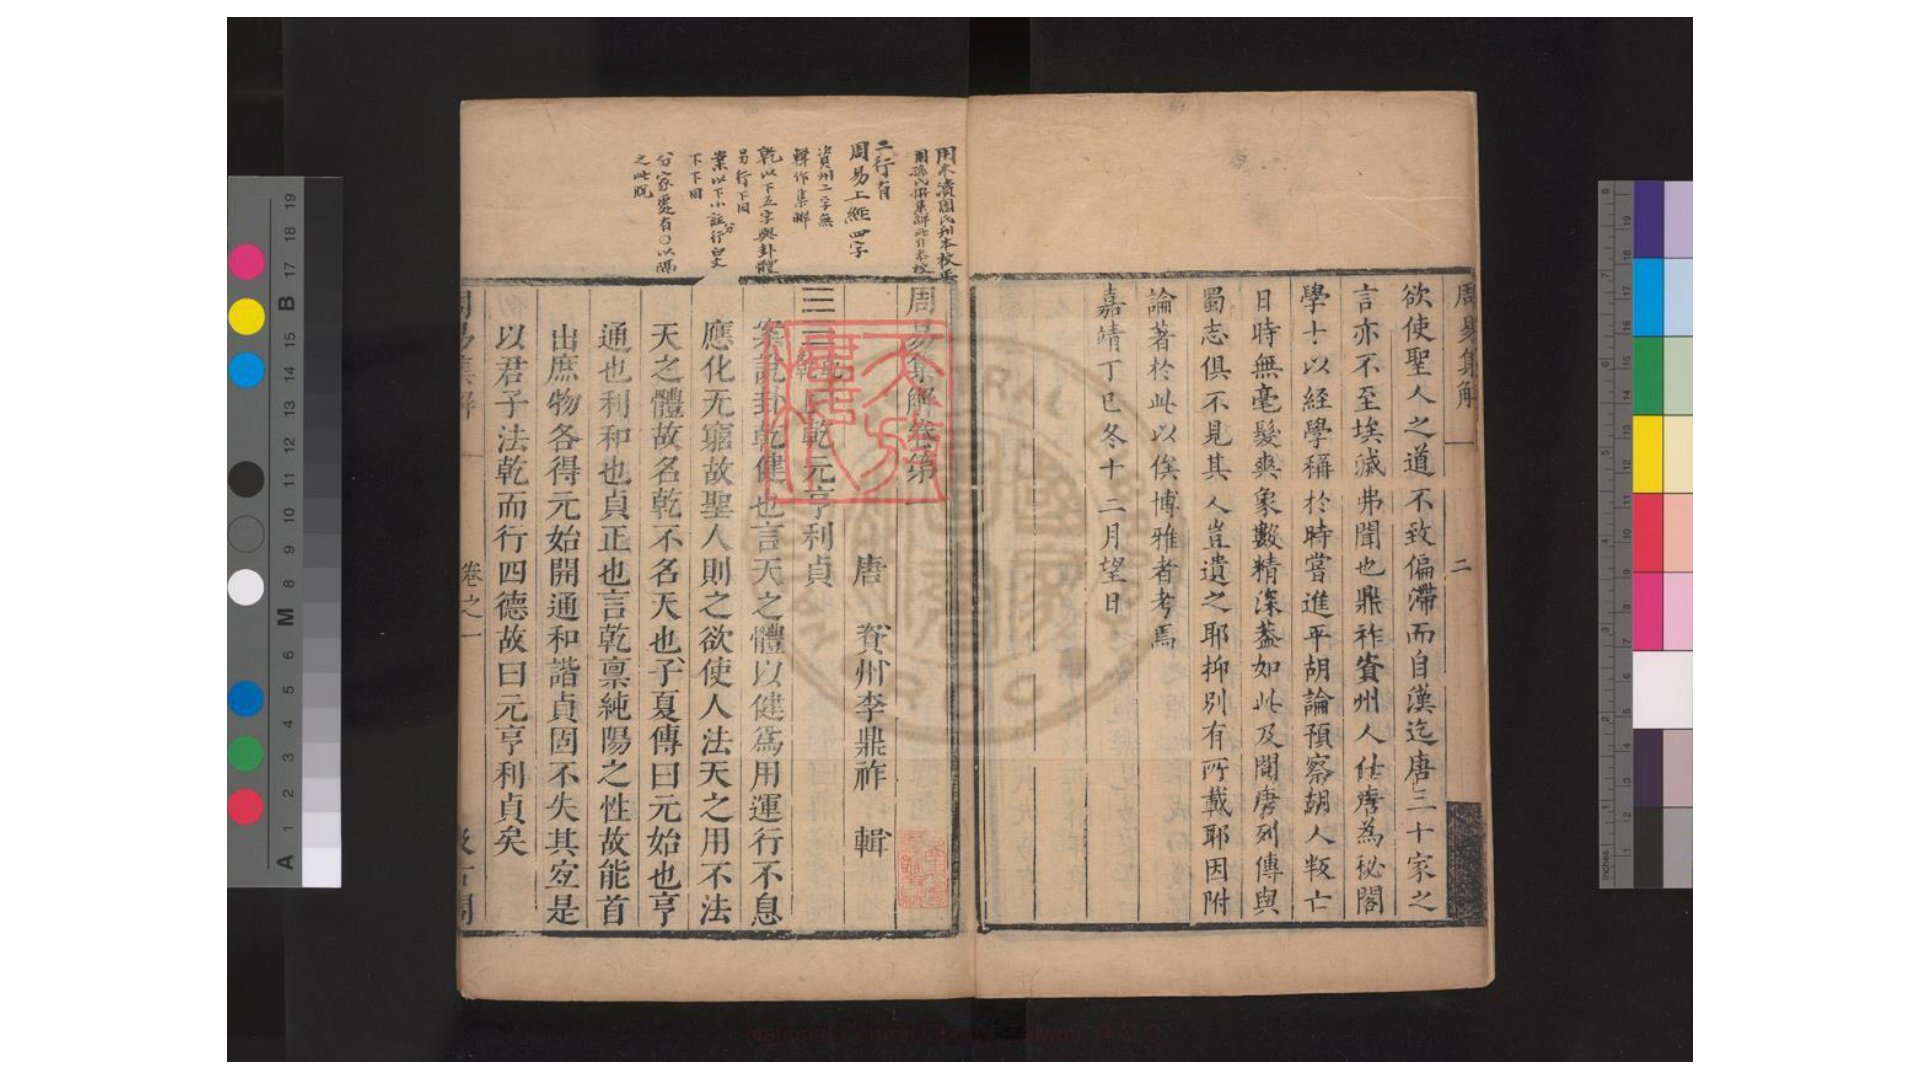 周易集解 二
欲使聖人之道不致偏滯而自漢迄唐三十家之
言亦不至埃滅弗聞也鼎祚資州人仕唐為秘閣
學士以經學稱於時嘗進平胡論預察胡人叛亡
日時無毫髮爽象數精深蓋如此及閱唐列傳與
蜀志俱不見其人豈遺之耶抑別有所載耶因附
論著於此以俟博雅者考焉
嘉靖丁巳冬十二月望日
二行有
周易上經四字
資州二字無
輯作集解
乾以下五字與卦體
另行下同
案以下小註分行白文
下下同
分家處有○以隔
之此脫
周易集解卷第一
唐 資州李鼎祚 輯
乾元亨利貞
案說卦乾健也言天之體以健為用運行不息
應化无窮故聖人則之欲使人法天之用不法
天之體故名乾不名天也子夏傳曰元始也亨
通也利和也貞正也言乾稟純陽之性故能首
出庶物各得元始開通和諧貞固不失其宜是
以君子法乾而行四德故曰元亨利貞矣
周易集解 卷之一 汲古閣